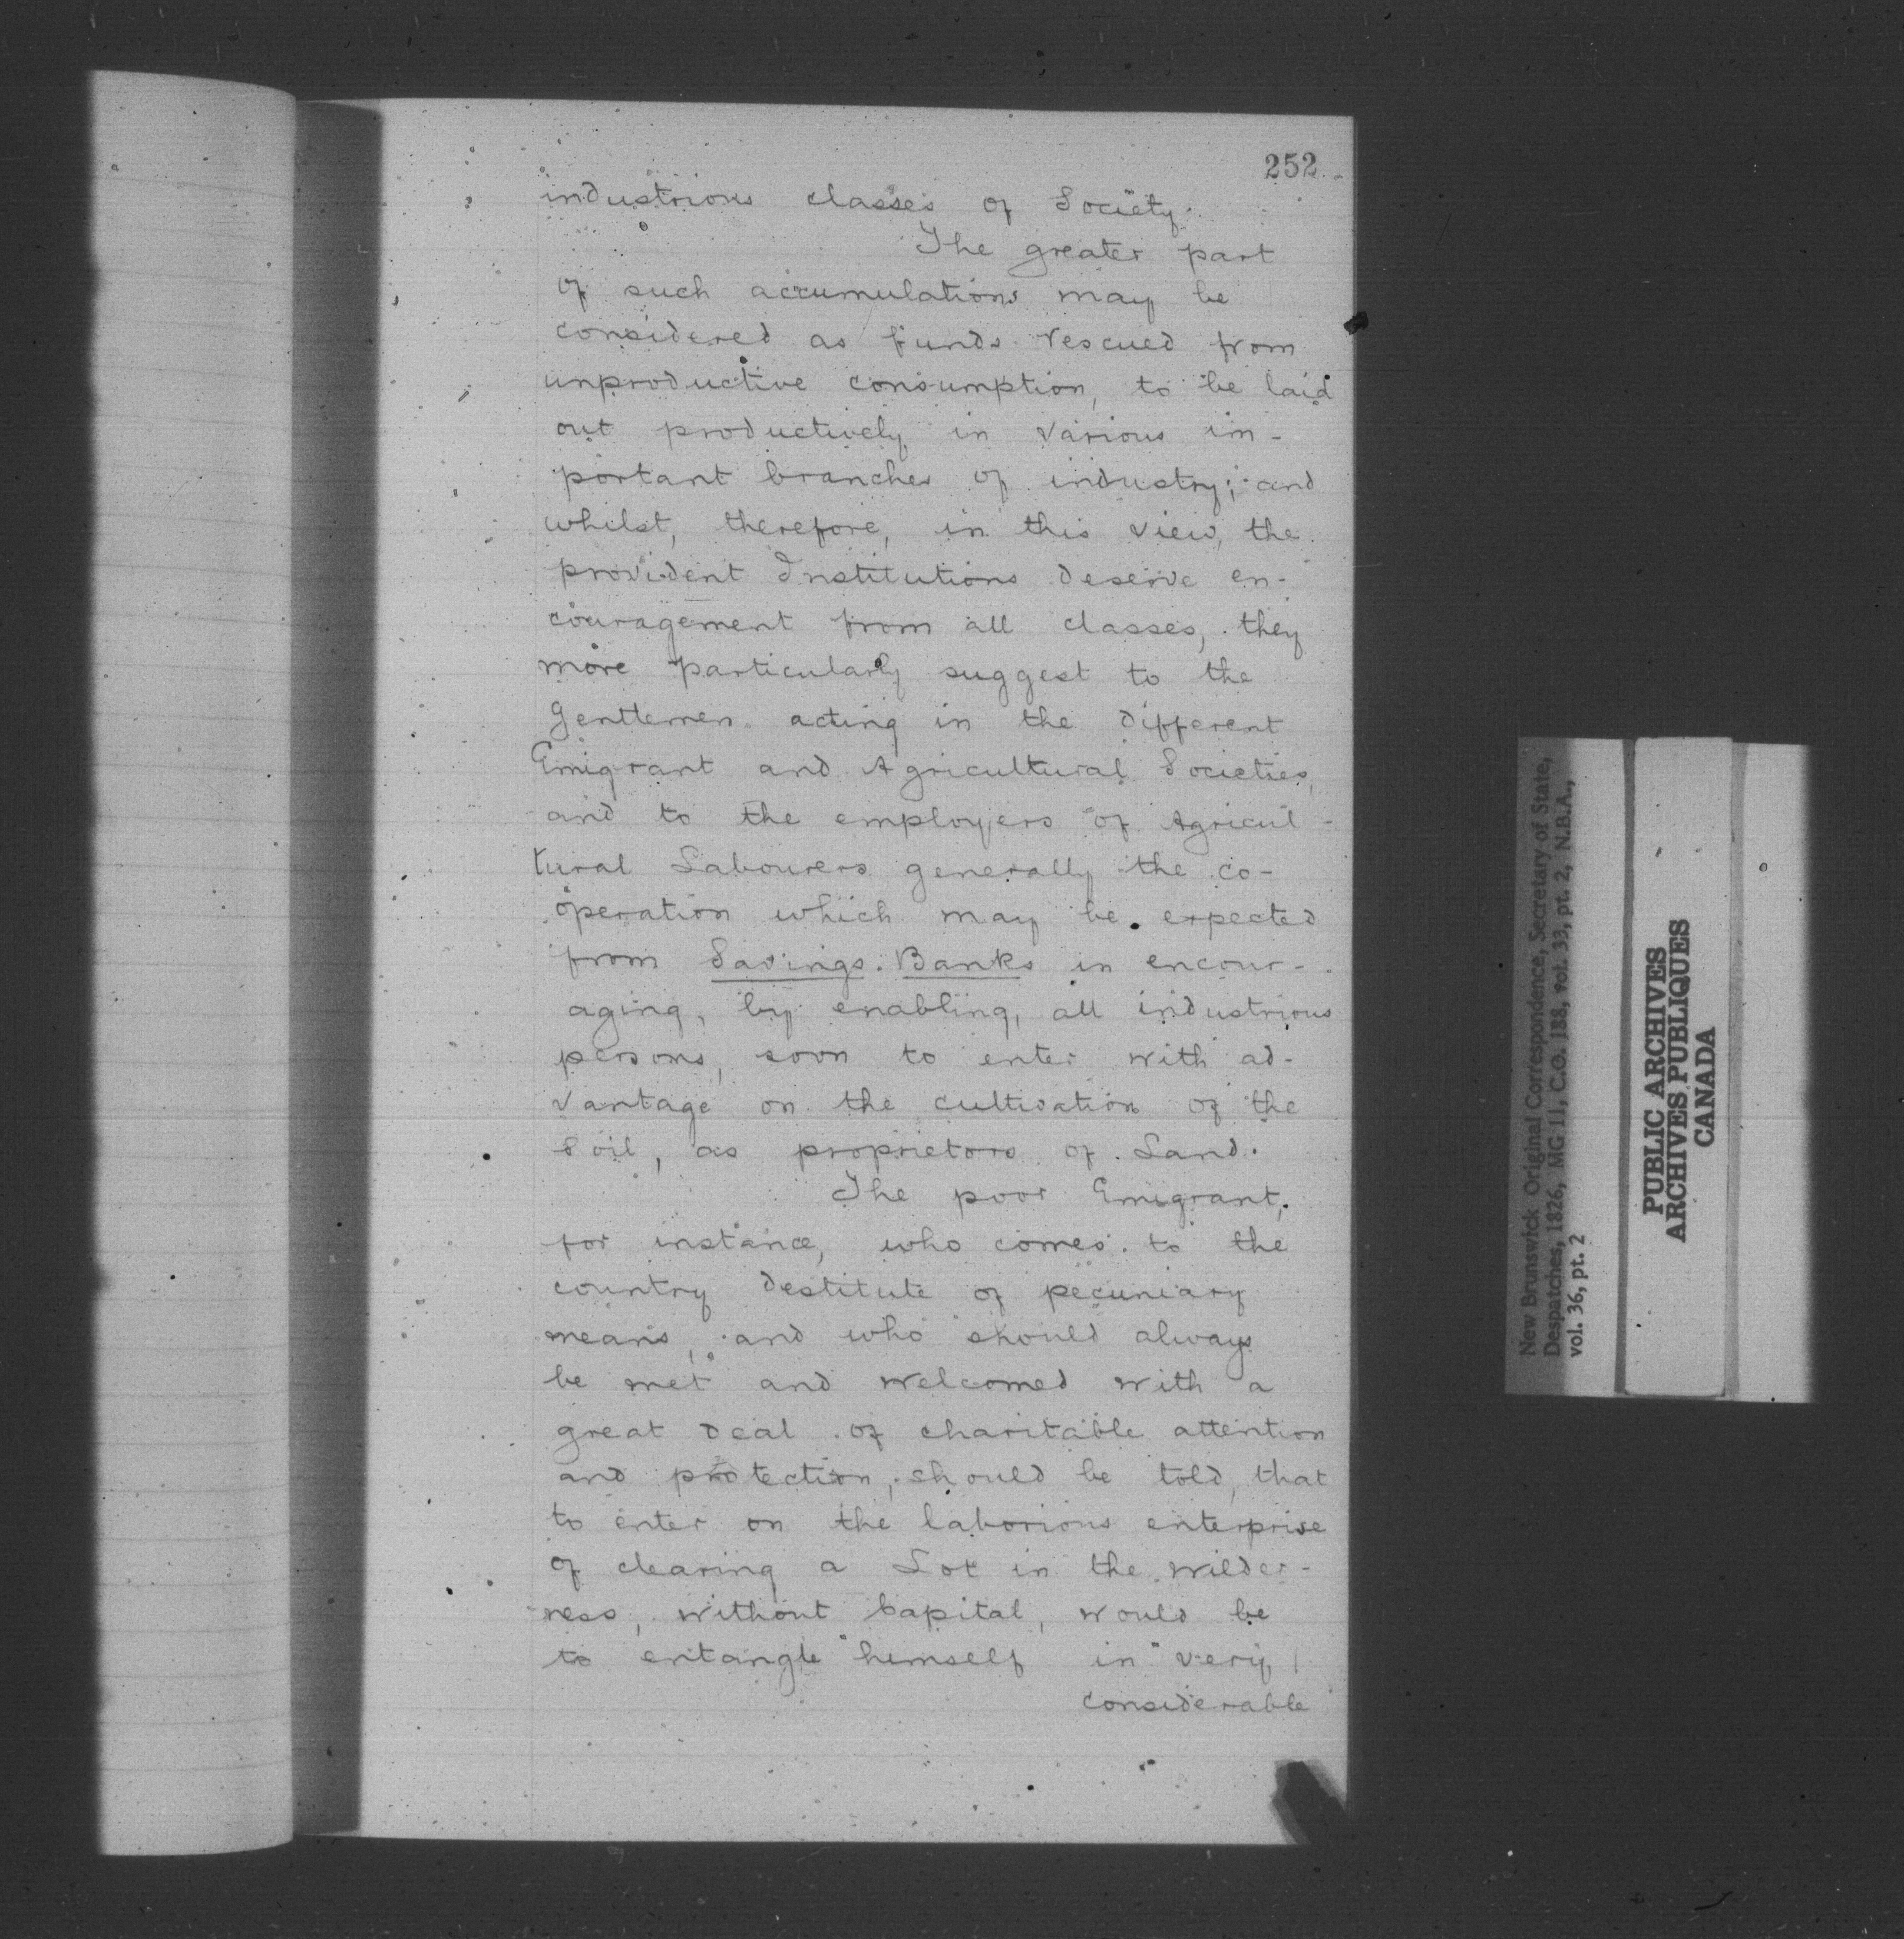 252
industrious classes of Society.
The greater part
of such accumulations may be
considered as funds rescued from
unproductive consumption, to be laid
out productively in various im-
portant branches of industry; and
whilst, therefore, in this view, the
provident Institutions deserve en-
couragement from all classes, they
more particularly suggest to the
Gentlemen acting in the different
Emigrant and Agricultural Societies,
and to the employers of Agricul-
tural Labourers generally the co-
operation which may be expected
from Savings Banks in encour-
aging, by enabling, all industrious
persons, soon to enter with ad-
vantage on the cultivation of the
Soil, as proprietors of Land.
The poor Emigrant,
for instance, who comes to the
country destitute of pecuniary
means, and who should always
be met and welcomed with a
great deal of charitable attention
and protection, should be told, that
to enter on the laborious enterprise
of clearing a Lot in the wilder-
ness, without Capital, would be
to entangle himself in very
considerable
New Brunswick Original Correspondence, Secretary of State,
Despatches, 1826, MG 11, C.O. 188, vol. 33, pt. 2, N.B.A.,
vol. 36, pt. 2
PUBLIC ARCHIVES
ARCHIVES PUBLIQUES
CANADA